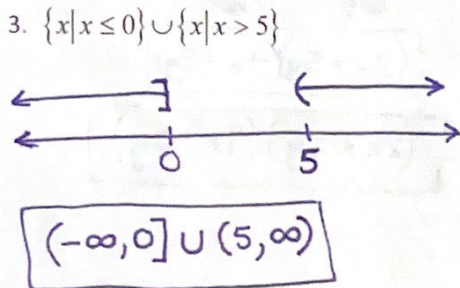 3. {x|x ≤ 0}∪{x|x > 5}
] (
0 5
(-∞,0] ∪ (5,∞)